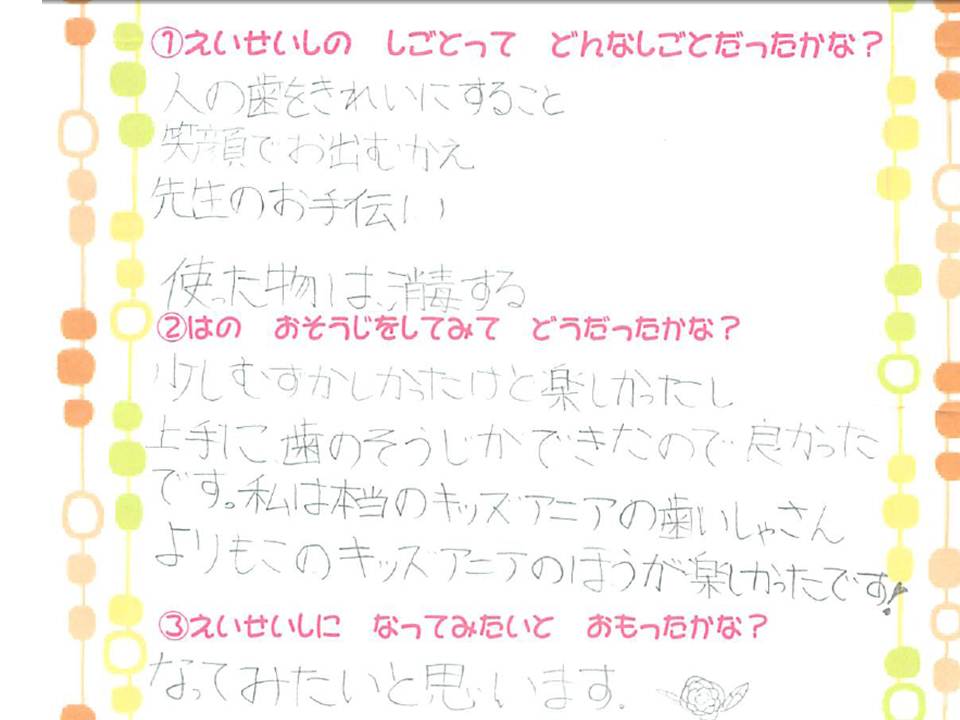 ①えいせいしの　しごとって　どんなしごとだったかな？
人の歯をきれいにすること
笑顔でお出むかえ
先生のお手伝い
使った物は、消毒する
②はの　おそうじをしてみて　どうだったかな？
少しむずかしかったけど楽しかったし
上手に歯のそうじができたので良かった
です。私は本当のキッズアニアの歯いしゃさん
よりもこのキッズアニアのほうが楽しかったです!
③えいせいしに　なってみたいと　おもったかな？
なってみたいと思います。